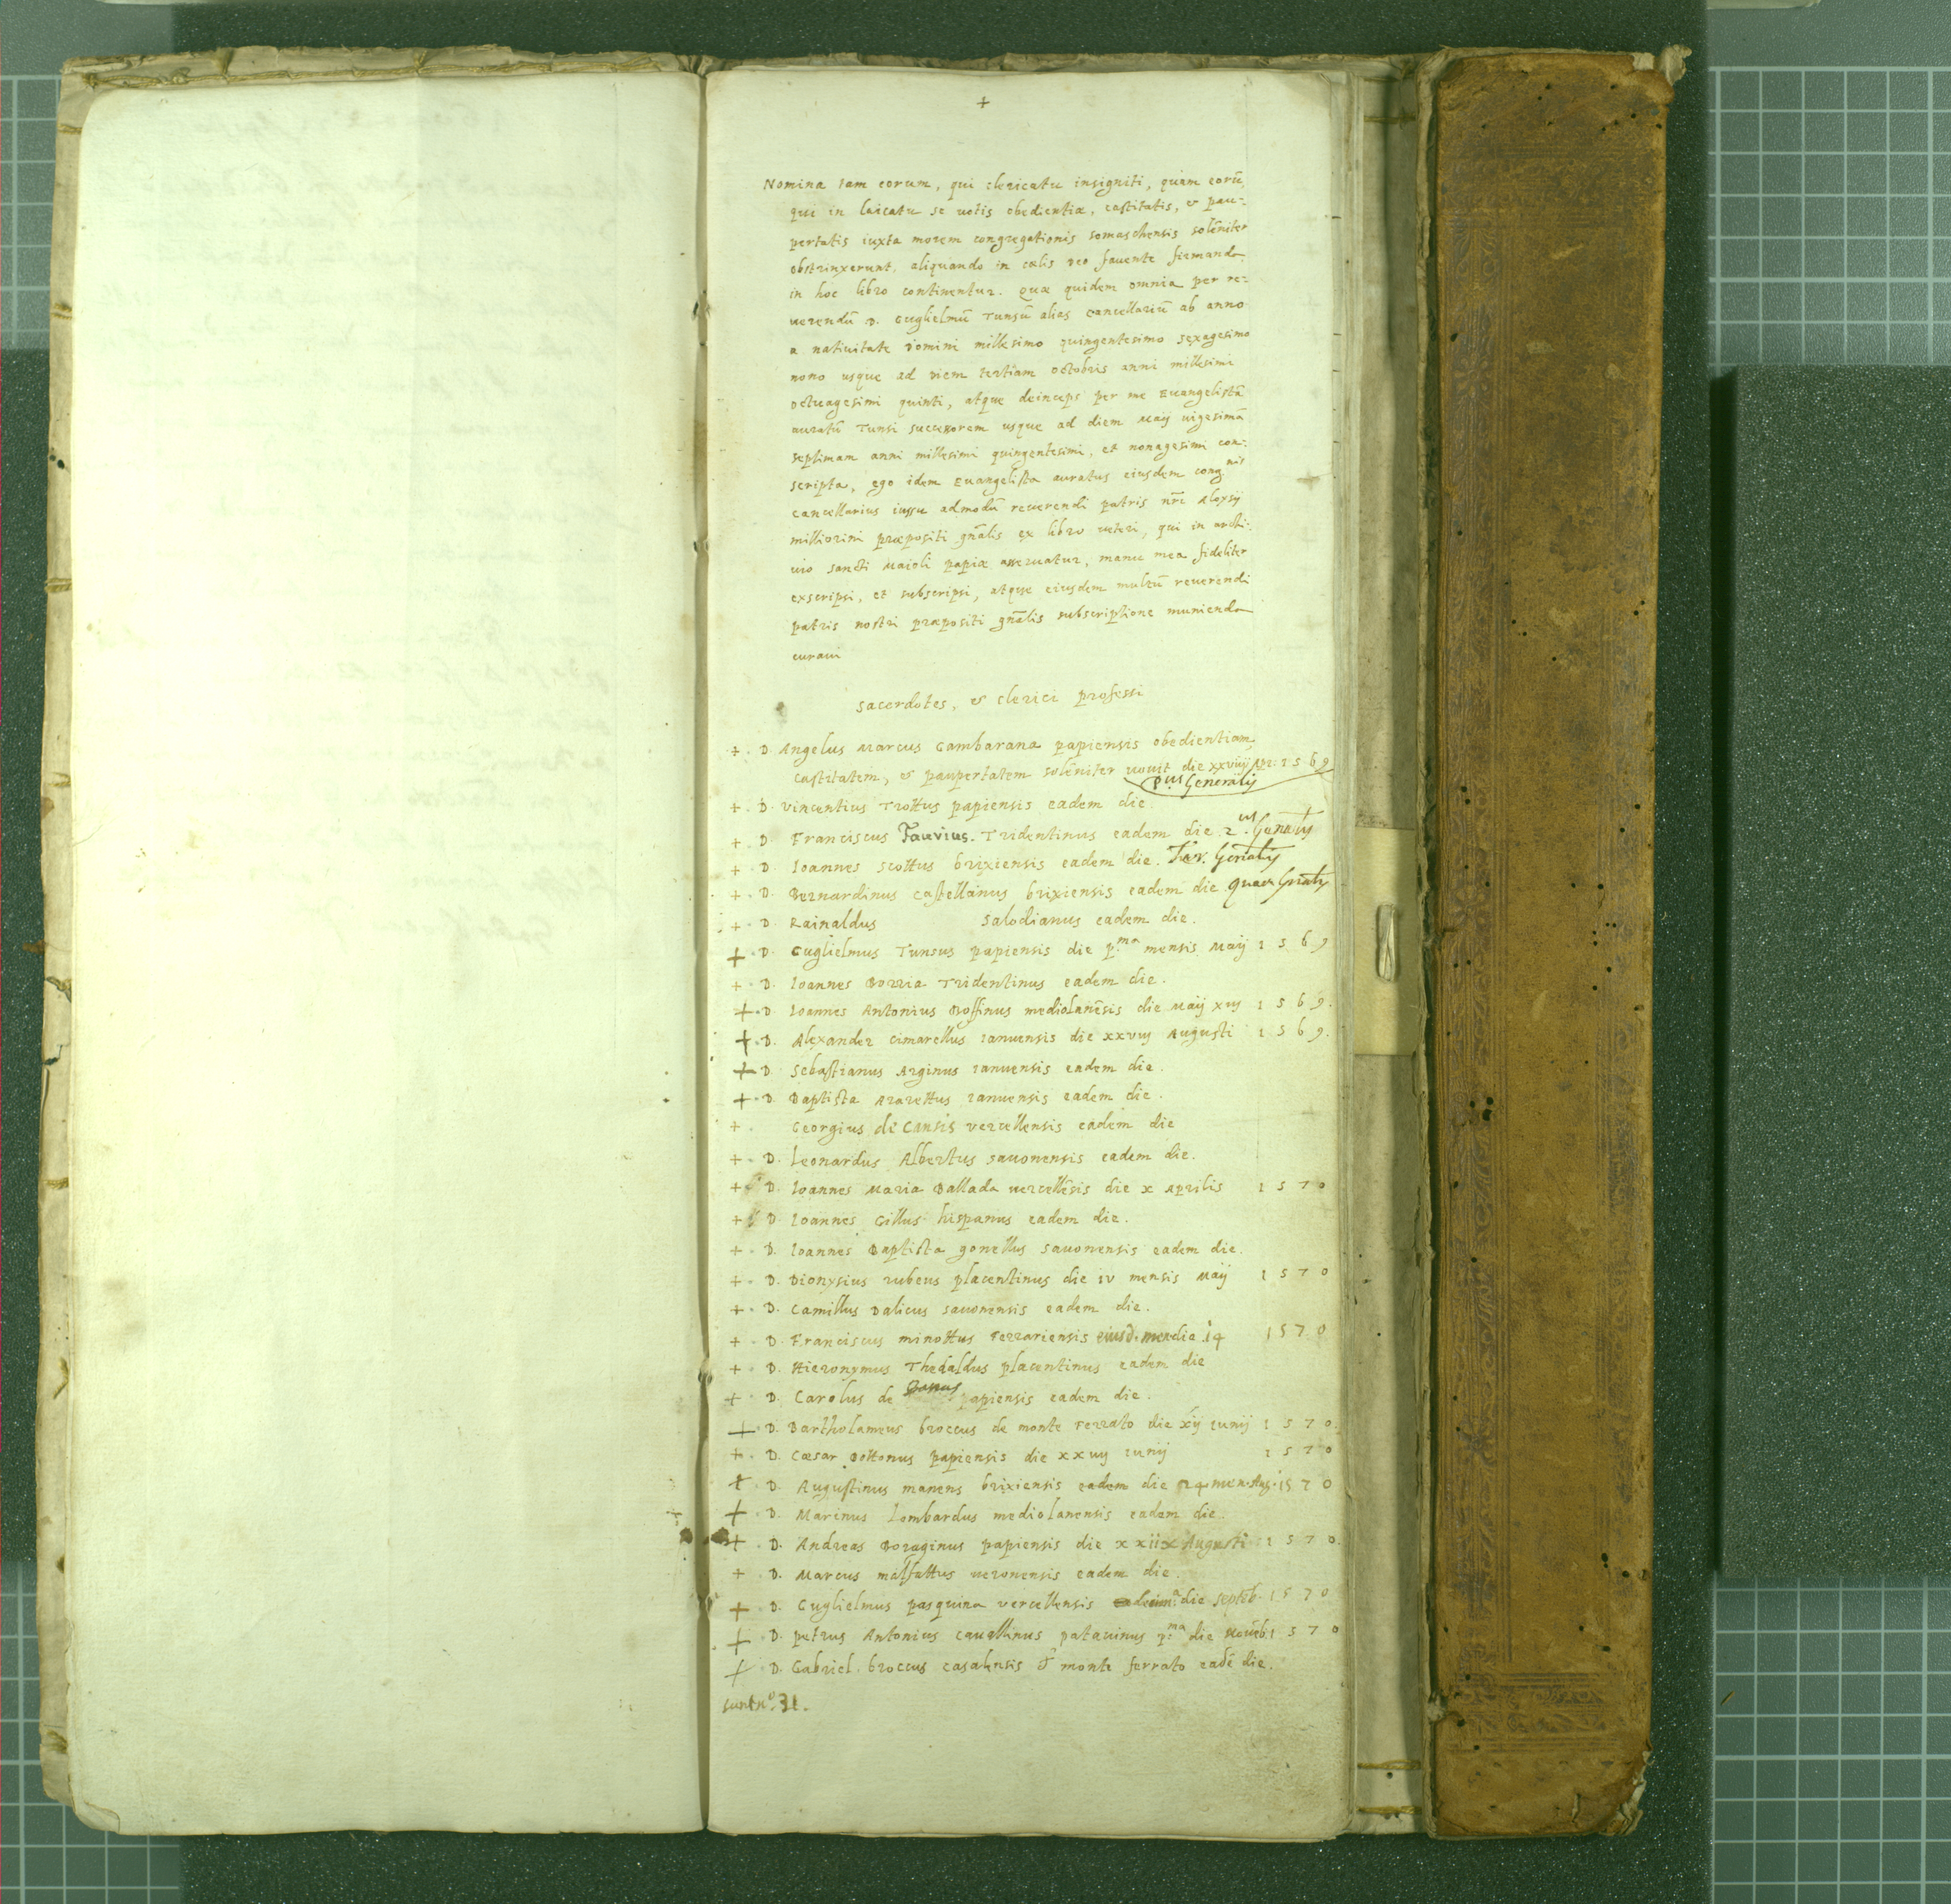 +
Nomina tam eorum, qui clericatu insigniti, quam eorū,
qui in laicatu se uotis obedientiæ, castitatis, & pau-
pertatis iuxta morem congregationis somaschensis solēniter
obstrinxerunt, aliquando in cælis deo fauente firmanda
in hoc libro continentur. Quæ quidem omnia per re-
uerendū D. Guglielmū Tunsū alias cancellariū ab anno
a natiuitate domini millesimo quingentesimo sexagesimo
nono usque ad diem tertiam octobris anni millesimi
octuagesimi quinti, atque deinceps per me Euangelistā
auratū Tunsi successorem usque ad diem Maij uigesimā
septimam anni millesimi quingentesimi, et nonagesimi con-
scripta, ego idem Euangelista auratus eiusdem cong.nis
cancellarius iussu admodū reuerendi patris nr̄i Alexij
milliorini præpositi gn̄alis ex libro ueteri, qui in archi-
uio sancti Maioli papiæ asseruatur, manu mea fideliter
exscripsi, et subscripsi, atque eiusdem multū reuerendi
patris nostri præpositi gn̄alis subscriptione munienda
curaui
sacerdotes, & clerici professi
+ . D. Angelus Marcus Gambarana papiensis obedientiam,
castitatem, & paupertatem solēniter uouit die xxviiij 1569
p.us Generalis
+ . D. Vincentius Trottus papiensis eadem die
+ . D. Franciscus Faurius. Tridentinus eadem die. 2.us Gen̄alis
+ . D. Ioannes Scottus brixiensis eadem die. Ter. Gen̄alis
+ . D. Bernardinus Castellanus brixiensis eadem die. Quar. Gn̄alis
+ . D. Rainaldus salodianus eadem die.
+ . D. Guglielmus Tunsus papiensis die p.ma mensis Maij 1569
+ . D. Ioannes Borria Tridentinus eadem die.
+ . D. Ioannes Antonius Bossinus mediolanēsis die Maij xvij 1569.
+ . D. Alexander cimarellus Ianuensis die xxviij Augusti 1569.
+ . D. Sebastianus Arginus ianuensis eadem die.
+ . D. Baptista ianuensis eadem die.
+ . Georgius de Cansis vercellensis eadem die
+ . D. Leonardus Albertus sauonensis eadem die.
+ . D. Ioannes Maria Ballada uercellēsis die x Aprilis 1570
+ . D. Ioannes Gillus hispanus eadem die.
+ . D. Ioannes Baptista gonellus sauonensis eadem die.
+ . D. Dionysius rubeus placentinus die iv mensis Maij 1570
+ . D. Camillus Dalicus sauonensis eadem die.
+ . D. Franciscus minottus Ferrariensis eiusd. men die 14 1570
+ . D. Hieronymus Thedaldus placentinus eadem die
+ . D. Carolus de papiensis eadem die.
+ . D. Bartholameus broccus de monte Ferrato die xij iunij 1570.
+ . D. Cæsar Bottonus papiensis die xxiiij iunij 1570
+ . D. Augustinus manens brixiensis eadem die 24 men. Aug. 1570
+ . D. Marinus Lombardus mediolanensis eadem die.
+ . D. Andreas Boraginus papiensis die xxiix Augusti 1570.
+ . D. Marcus malfattus ueronensis eadem die.
+ . D. Guglielmus pasquina vercellensis die septēb. 1570
+ . D. Petrus Antonius cauallinus patauinus p.ma die Nouēb 1570
+ . D. Gabriel. broccus casalensis monte ferrato eadē die.
sunt n.o 31.